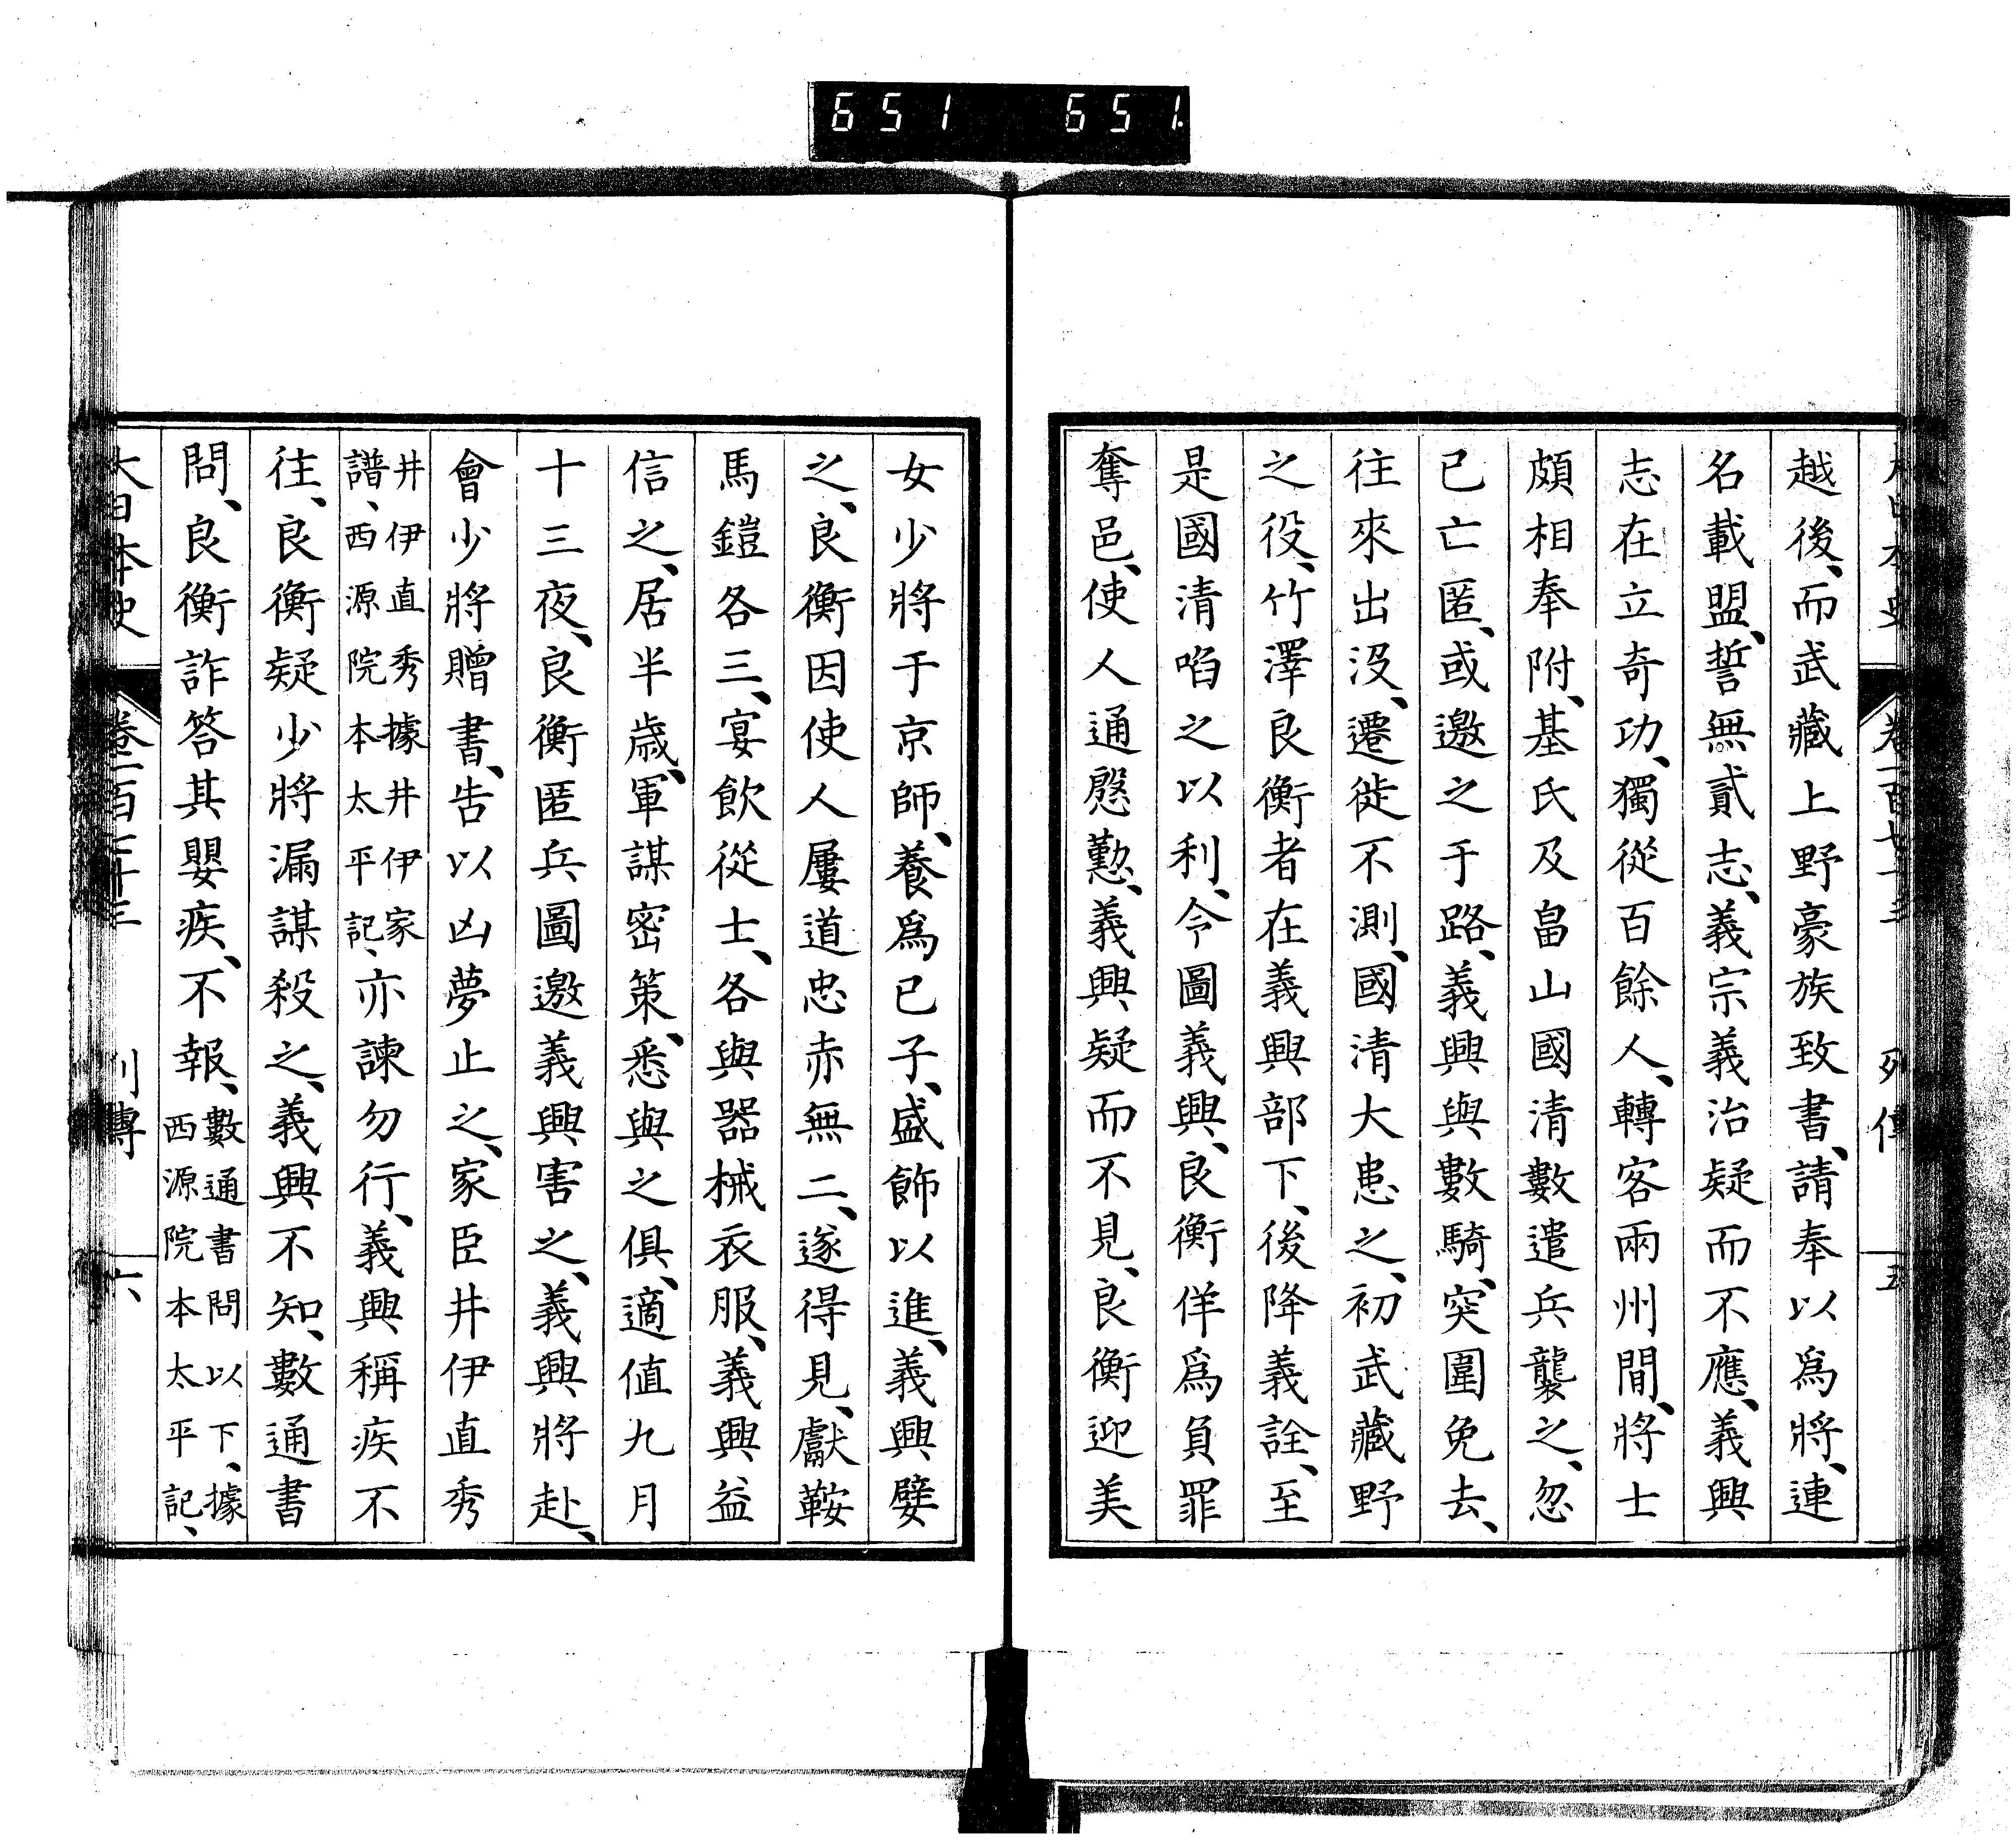 651 651
大日本史 卷一百七十三 列傳 五
越後、而武藏上野豪族致書、請奉以爲將、連
名載盟、誓無貳志、義宗義治疑而不應、義興
志在立奇功、獨從百餘人、轉客兩州間、將士
頗相奉附、基氏及畠山國清數遣兵襲之、忽
已亡匿、或邀之于路、義興與數騎、突圍免去、
往來出沒、遷徙不測、國清大患之、初武藏野
之役、竹澤良衡者在義興部下、後降義詮、至
是國清啗之以利、令圖義興、良衡佯爲負罪
奪邑、使人通慇懃、義興疑而不見、良衡迎美
女少將于京師、養爲已子、盛飾以進、義興嬖
之、良衡因使人屢道忠赤無二、遂得見、獻鞍
馬鎧各三、宴飮從士、各與器械衣服、義興益
信之、居半歲、軍謀密策、悉與之俱、適値九月
十三夜、良衡匿兵圖邀義興害之、義興將赴、
會少將贈書、告以凶夢止之、家臣井伊直秀
井伊直秀據井伊家
譜、西源院本太平記、亦諫勿行、義興稱疾不
往、良衡疑少將漏謀殺之、義興不知、數通書
問、良衡詐答其嬰疾、不報、數通書問以下、據
西源院本太平記、
大日本史 卷一百七十三 列傳 六